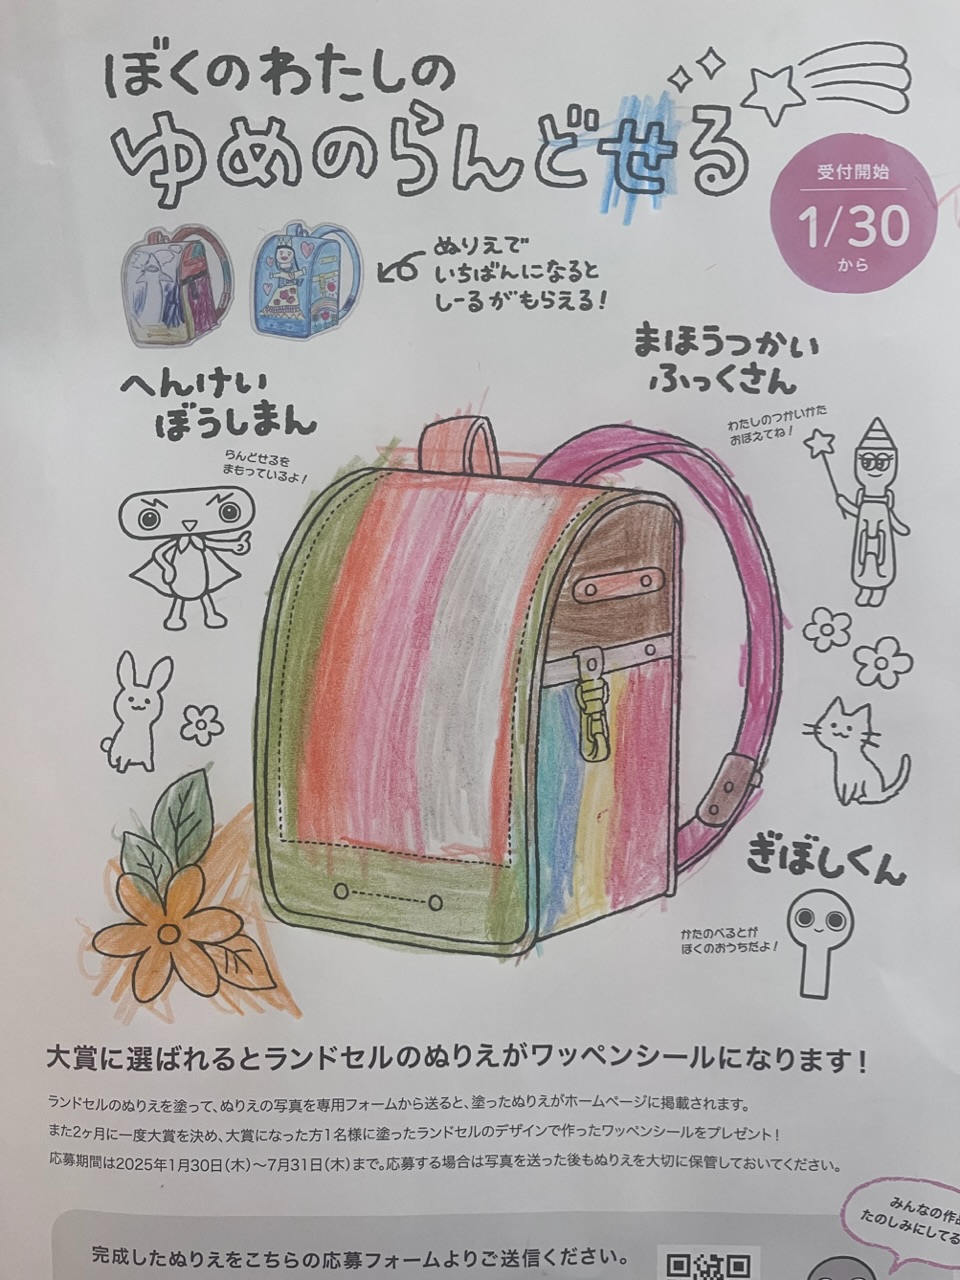 ぼくのわたしの
ゆめのらんどせる
受付開始
1/30
から
ぬりえで
いちばんになると
しーるがもらえる！
まほうつかい
ふっくさん
わたしのつかいかた
おぼえてね！
へんけい
ぼうしまん
らんどせるを
まもっているよ！
ぎぼしくん
かたのべるとが
ぼくのおうちだよ！
大賞に選ばれるとランドセルのぬりえがワッペンシールになります！
ランドセルのぬりえを塗って、ぬりえの写真を専用フォームから送ると、塗ったぬりえがホームページに掲載されます。
また2ヶ月に一度大賞を決め、大賞になった方1名様に塗ったランドセルのデザインで作ったワッペンシールをプレゼント！
応募期間は2025年1月30日(木)～7月31日(木)まで。応募する場合は写真を送った後もぬりえを大切に保管しておいてください。
みんなの作品
たのしみにしてる
完成したぬりえをこちらの応募フォームよりご送信ください。